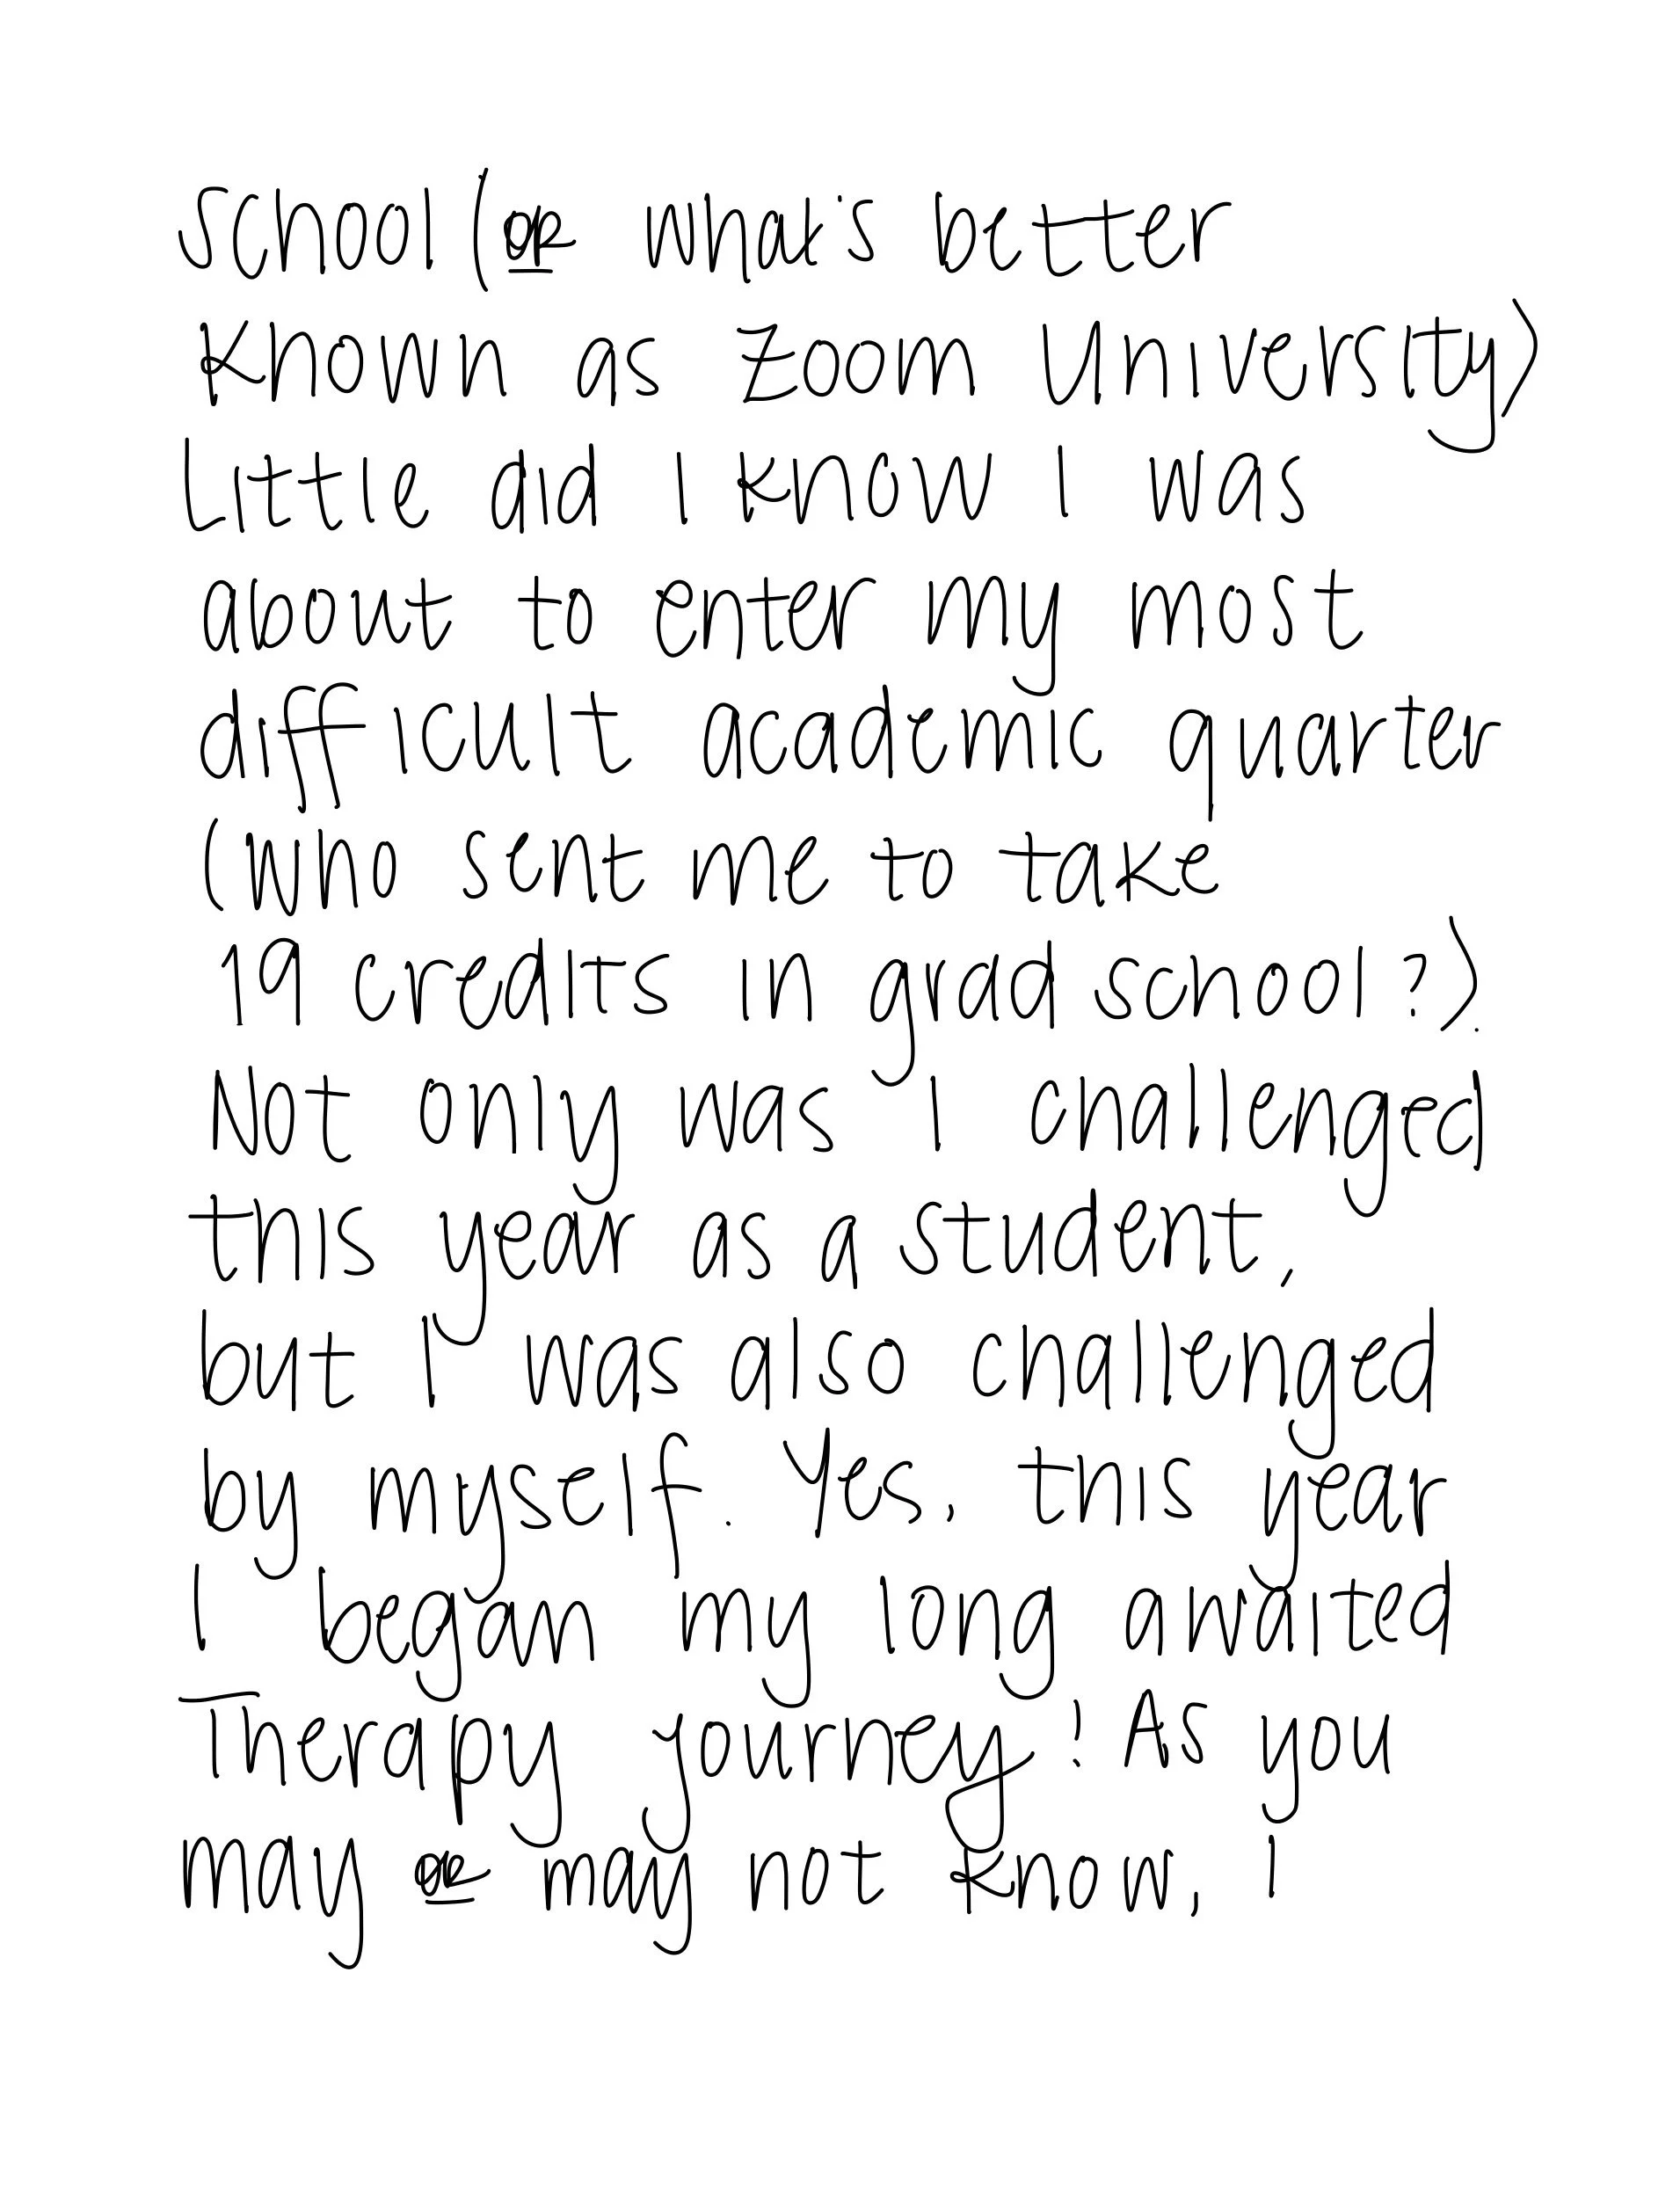 School (or what's better
Known as Zoom University)
Little did I know I was
about to enter my most
difficult academic quarter
(who sent me to take
19 credits in grad school?).
Not only was I challenged
this year as a student,
but I was also challenged
by myself. Yes, this year
I began my long awaited
Therapy journey! As you
may or may not know, I